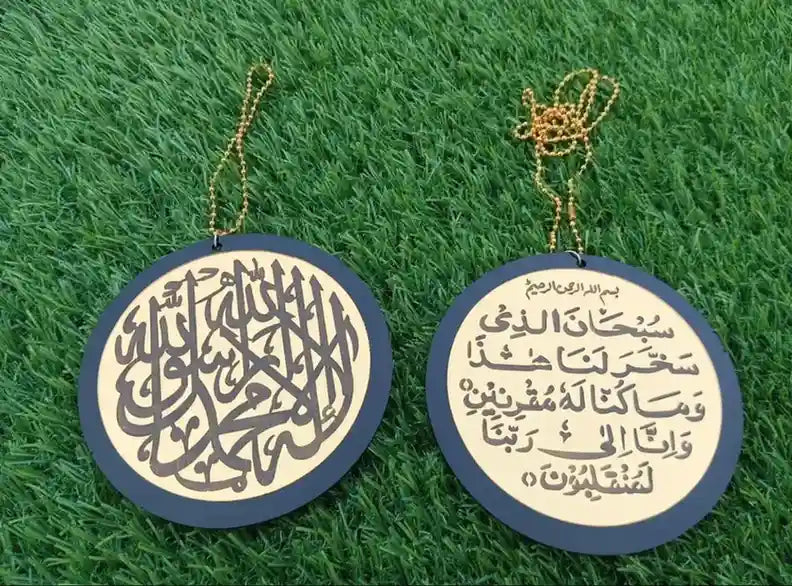 لا إله إلا الله محمد رسول الله
بسم الله الرحمن الرحيم
سُبْحَانَ الَّذِي
سَخَّرَ لَنَا هٰذَا
وَمَا كُنَّا لَهُ مُقْرِنِيْنَ
وَاِنَّا اِلٰى رَبِّنَا
لَمُنْقَلِبُوْنَ